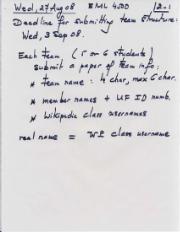 Wed, 27 Aug 08 EML 4500 [2.1
Deadline for submitting team structure:
Wed, 3 Sep 08.
Each team (5 or 6 students)
submit a paper of team info:
* team name: 4 char, max 6 char.
* member names + UF ID numb.
* Wikipedia class usernames
real name = WP class username